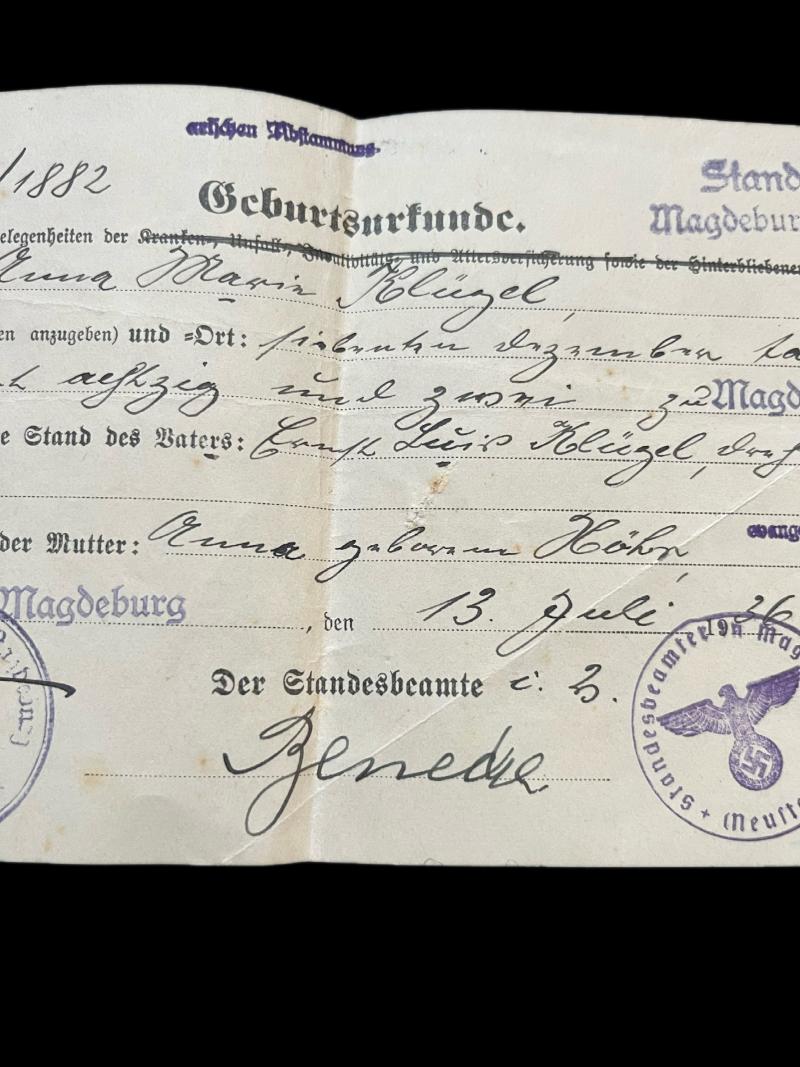 arischen Abstammung.
/1882
Stand
Geburtsurkunde.
Magdebur
elegenheiten der Kranken-, Unfall-, Invaliditäts- und Altersversicherung sowie der Hinterbliebenen
Anna Marie Klügel,
en anzugeben) und =Ort: siebenten Dezember ta
achtzig und zwei zu Magd
e Stand des Vaters: Ernst Luis Klügel, dreh
der Mutter: Anna geborene Höhr, evang
Magdeburg, den 13. Juli 1936
Der Standesbeamte i. V.
Benecke
Standesbeamter in Mag
(Neust